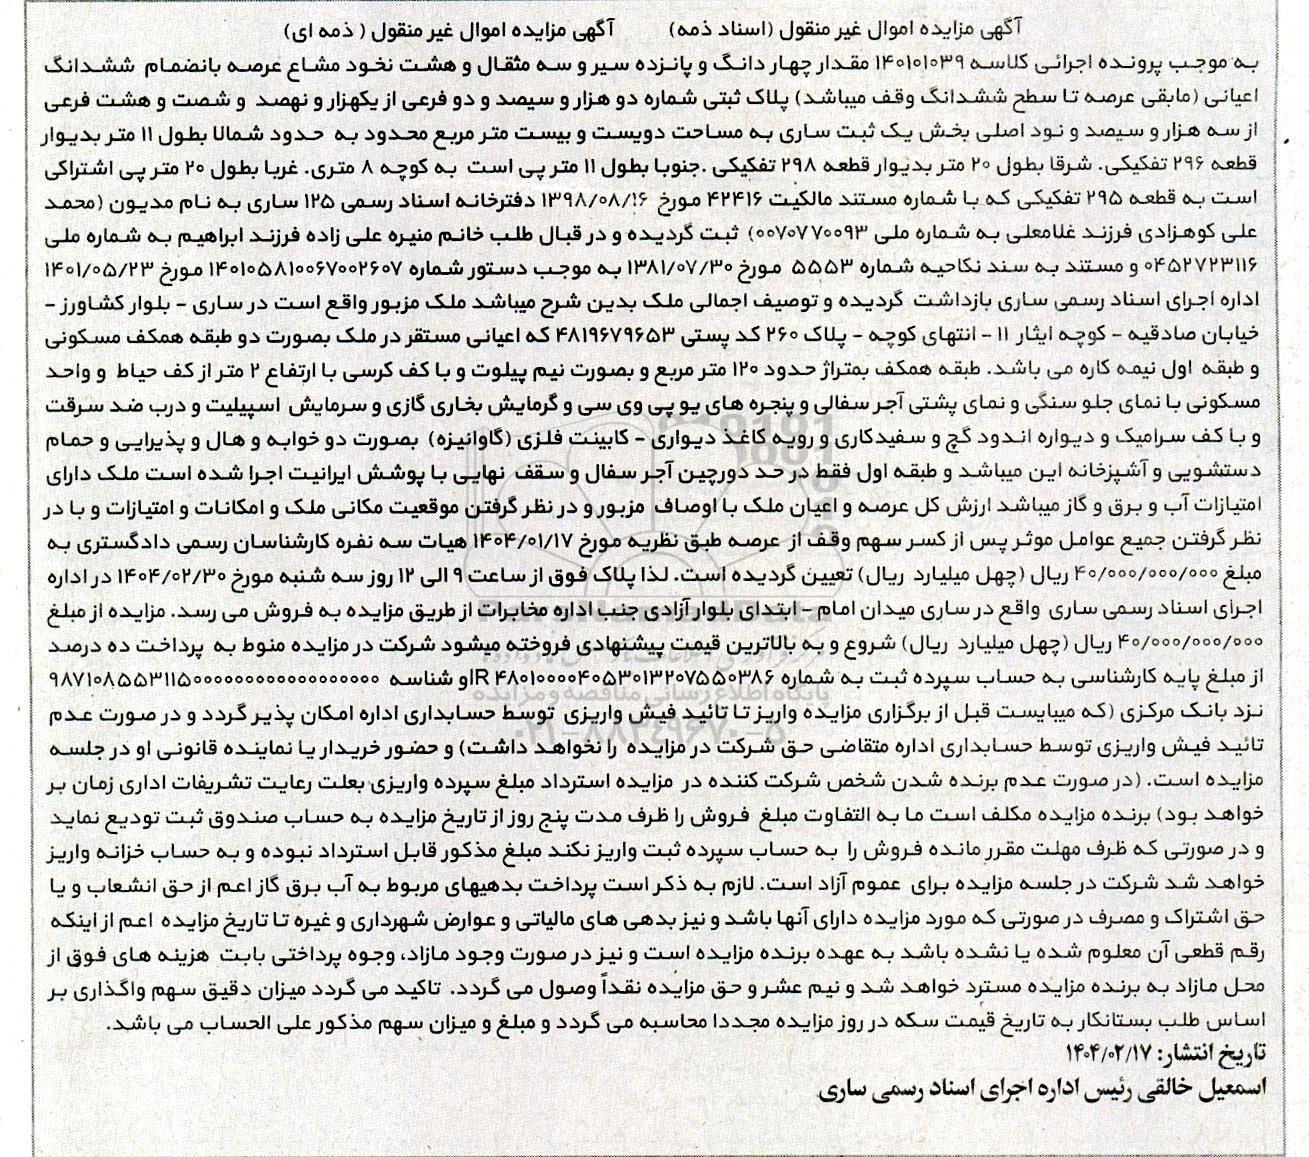 آگهی مزایده اموال غیر منقول (اسناد ذمه) آگهی مزایده اموال غیر منقول ( ذمه ای)
به موجب پرونده اجرائی کلاسه ۱۴۰۱۰۱۰۳۹ مقدار چهار دانگ و پانزده سیر و سه مثقال و هشت نخود مشاع عرصه بانضمام ششدانگ
اعیانی (مابقی عرصه تا سطح ششدانگ وقف میباشد) پلاک ثبتی شماره دو هزار و سیصد و دو فرعی از یکهزار و نهصد و شصت و هشت فرعی
از سه هزار و سیصد و نود اصلی بخش یک ثبت ساری به مساحت دویست و بیست متر مربع محدود به حدود شمالا بطول ۱۱ متر بدیوار
قطعه ۲۹۶ تفکیکی. شرقا بطول ۲۰ متر بدیوار قطعه ۲۹۸ تفکیکی .جنوبا بطول ۱۱ متر پی است به کوچه ۸ متری. غربا بطول ۲۰ متر پی اشتراکی
است به قطعه ۲۹۵ تفکیکی که با شماره مستند مالکیت ۴۲۴۱۶ مورخ ۱۳۹۸/۰۸/۱۶ دفترخانه اسناد رسمی ۱۲۵ ساری به نام مدیون (محمد
علی کوهزادی فرزند غلامعلی به شماره ملی ۰۰۷۰۷۷۰۰۹۳) ثبت گردیده و در قبال طلب خانم منیره علی زاده فرزند ابراهیم به شماره ملی
۰۴۵۲۷۲۳۱۱۶ و مستند به سند نکاحیه شماره ۵۵۵۳ مورخ ۱۳۸۱/۰۷/۳۰ به موجب دستور شماره ۱۴۰۱۰۵۸۱۰۰۶۷۰۰۲۶۰۷ مورخ ۱۴۰۱/۰۵/۲۳
اداره اجرای اسناد رسمی ساری بازداشت گردیده و توصیف اجمالی ملک بدین شرح میباشد ملک مزبور واقع است در ساری – بلوار کشاورز –
خیابان صادقیه – کوچه ایثار ۱۱ – انتهای کوچه – پلاک ۲۶۰ کد پستی ۴۸۱۹۶۷۹۶۵۳ که اعیانی مستقر در ملک بصورت دو طبقه همکف مسکونی
و طبقه اول نیمه کاره می باشد. طبقه همکف بمتراژ حدود ۱۲۰ متر مربع و بصورت نیم پیلوت و با کف کرسی با ارتفاع ۲ متر از کف حیاط و واحد
مسکونی با نمای جلو سنگی و نمای پشتی آجر سفالی و پنجره های یو پی وی سی و گرمایش بخاری گازی و سرمایش اسپیلیت و درب ضد سرقت
و با کف سرامیک و دیواره اندود گچ و سفیدکاری و رویه کاغذ دیواری – کابینت فلزی (گاوانیزه) بصورت دو خوابه و هال و پذیرایی و حمام
دستشویی و آشپزخانه این میباشد و طبقه اول فقط در حد دورچین آجر سفال و سقف نهایی با پوشش ایرانیت اجرا شده است ملک دارای
امتیازات آب و برق و گاز میباشد ارزش کل عرصه و اعیان ملک با اوصاف مزبور و در نظر گرفتن موقعیت مکانی ملک و امکانات و امتیازات و با در
نظر گرفتن جمیع عوامل موثر پس از کسر سهم وقف از عرصه طبق نظریه مورخ ۱۴۰۴/۰۱/۱۷ هیات سه نفره کارشناسان رسمی دادگستری به
مبلغ ۴۰/۰۰۰/۰۰۰/۰۰۰ ریال (چهل میلیارد ریال) تعیین گردیده است. لذا پلاک فوق از ساعت ۹ الی ۱۲ روز سه شنبه مورخ ۱۴۰۴/۰۲/۳۰ در اداره
اجرای اسناد رسمی ساری واقع در ساری میدان امام – ابتدای بلوار آزادی جنب اداره مخابرات از طریق مزایده به فروش می رسد. مزایده از مبلغ
۴۰/۰۰۰/۰۰۰/۰۰۰ ریال (چهل میلیارد ریال) شروع و به بالاترین قیمت پیشنهادی فروخته میشود شرکت در مزایده منوط به پرداخت ده درصد
از مبلغ پایه کارشناسی به حساب سپرده ثبت به شماره IR ۴۸۰۱۰۰۰۰۴۰۵۳۰۱۳۲۰۷۵۵۰۳۸۶او شناسه ۹۸۷۱۰۸۵۵۳۱۱۵۰۰۰۰۰۰۰۰۰۰۰۰۰۰۰۰۰
نزد بانک مرکزی (که میبایست قبل از برگزاری مزایده واریز تا تائید فیش واریزی توسط حسابداری اداره امکان پذیر گردد و در صورت عدم
تائید فیش واریزی توسط حسابداری اداره متقاضی حق شرکت در مزایده را نخواهد داشت) و حضور خریدار یا نماینده قانونی او در جلسه
مزایده است. (در صورت عدم برنده شدن شخص شرکت کننده در مزایده استرداد مبلغ سپرده واریزی بعلت رعایت تشریفات اداری زمان بر
خواهد بود) برنده مزایده مکلف است ما به التفاوت مبلغ فروش را ظرف مدت پنج روز از تاریخ مزایده به حساب صندوق ثبت تودیع نماید
و در صورتی که ظرف مهلت مقرر مانده فروش را به حساب سپرده ثبت واریز نکند مبلغ مذکور قابل استرداد نبوده و به حساب خزانه واریز
خواهد شد شرکت در جلسه مزایده برای عموم آزاد است. لازم به ذکر است پرداخت بدهیهای مربوط به آب برق گاز اعم از حق انشعاب و یا
حق اشتراک و مصرف در صورتی که مورد مزایده دارای آنها باشد و نیز بدهی های مالیاتی و عوارض شهرداری و غیره تا تاریخ مزایده اعم از اینکه
رقم قطعی آن معلوم شده یا نشده باشد به عهده برنده مزایده است و نیز در صورت وجود مازاد، وجوه پرداختی بابت هزینه های فوق از
محل مازاد به برنده مزایده مسترد خواهد شد و نیم عشر و حق مزایده نقداً وصول می گردد. تاکید می گردد میزان دقیق سهم واگذاری بر
اساس طلب بستانکار به تاریخ قیمت سکه در روز مزایده مجددا محاسبه می گردد و مبلغ و میزان سهم مذکور علی الحساب می باشد.
تاریخ انتشار: ۱۴۰۴/۰۲/۱۷
اسمعیل خالقی رئیس اداره اجرای اسناد رسمی ساری